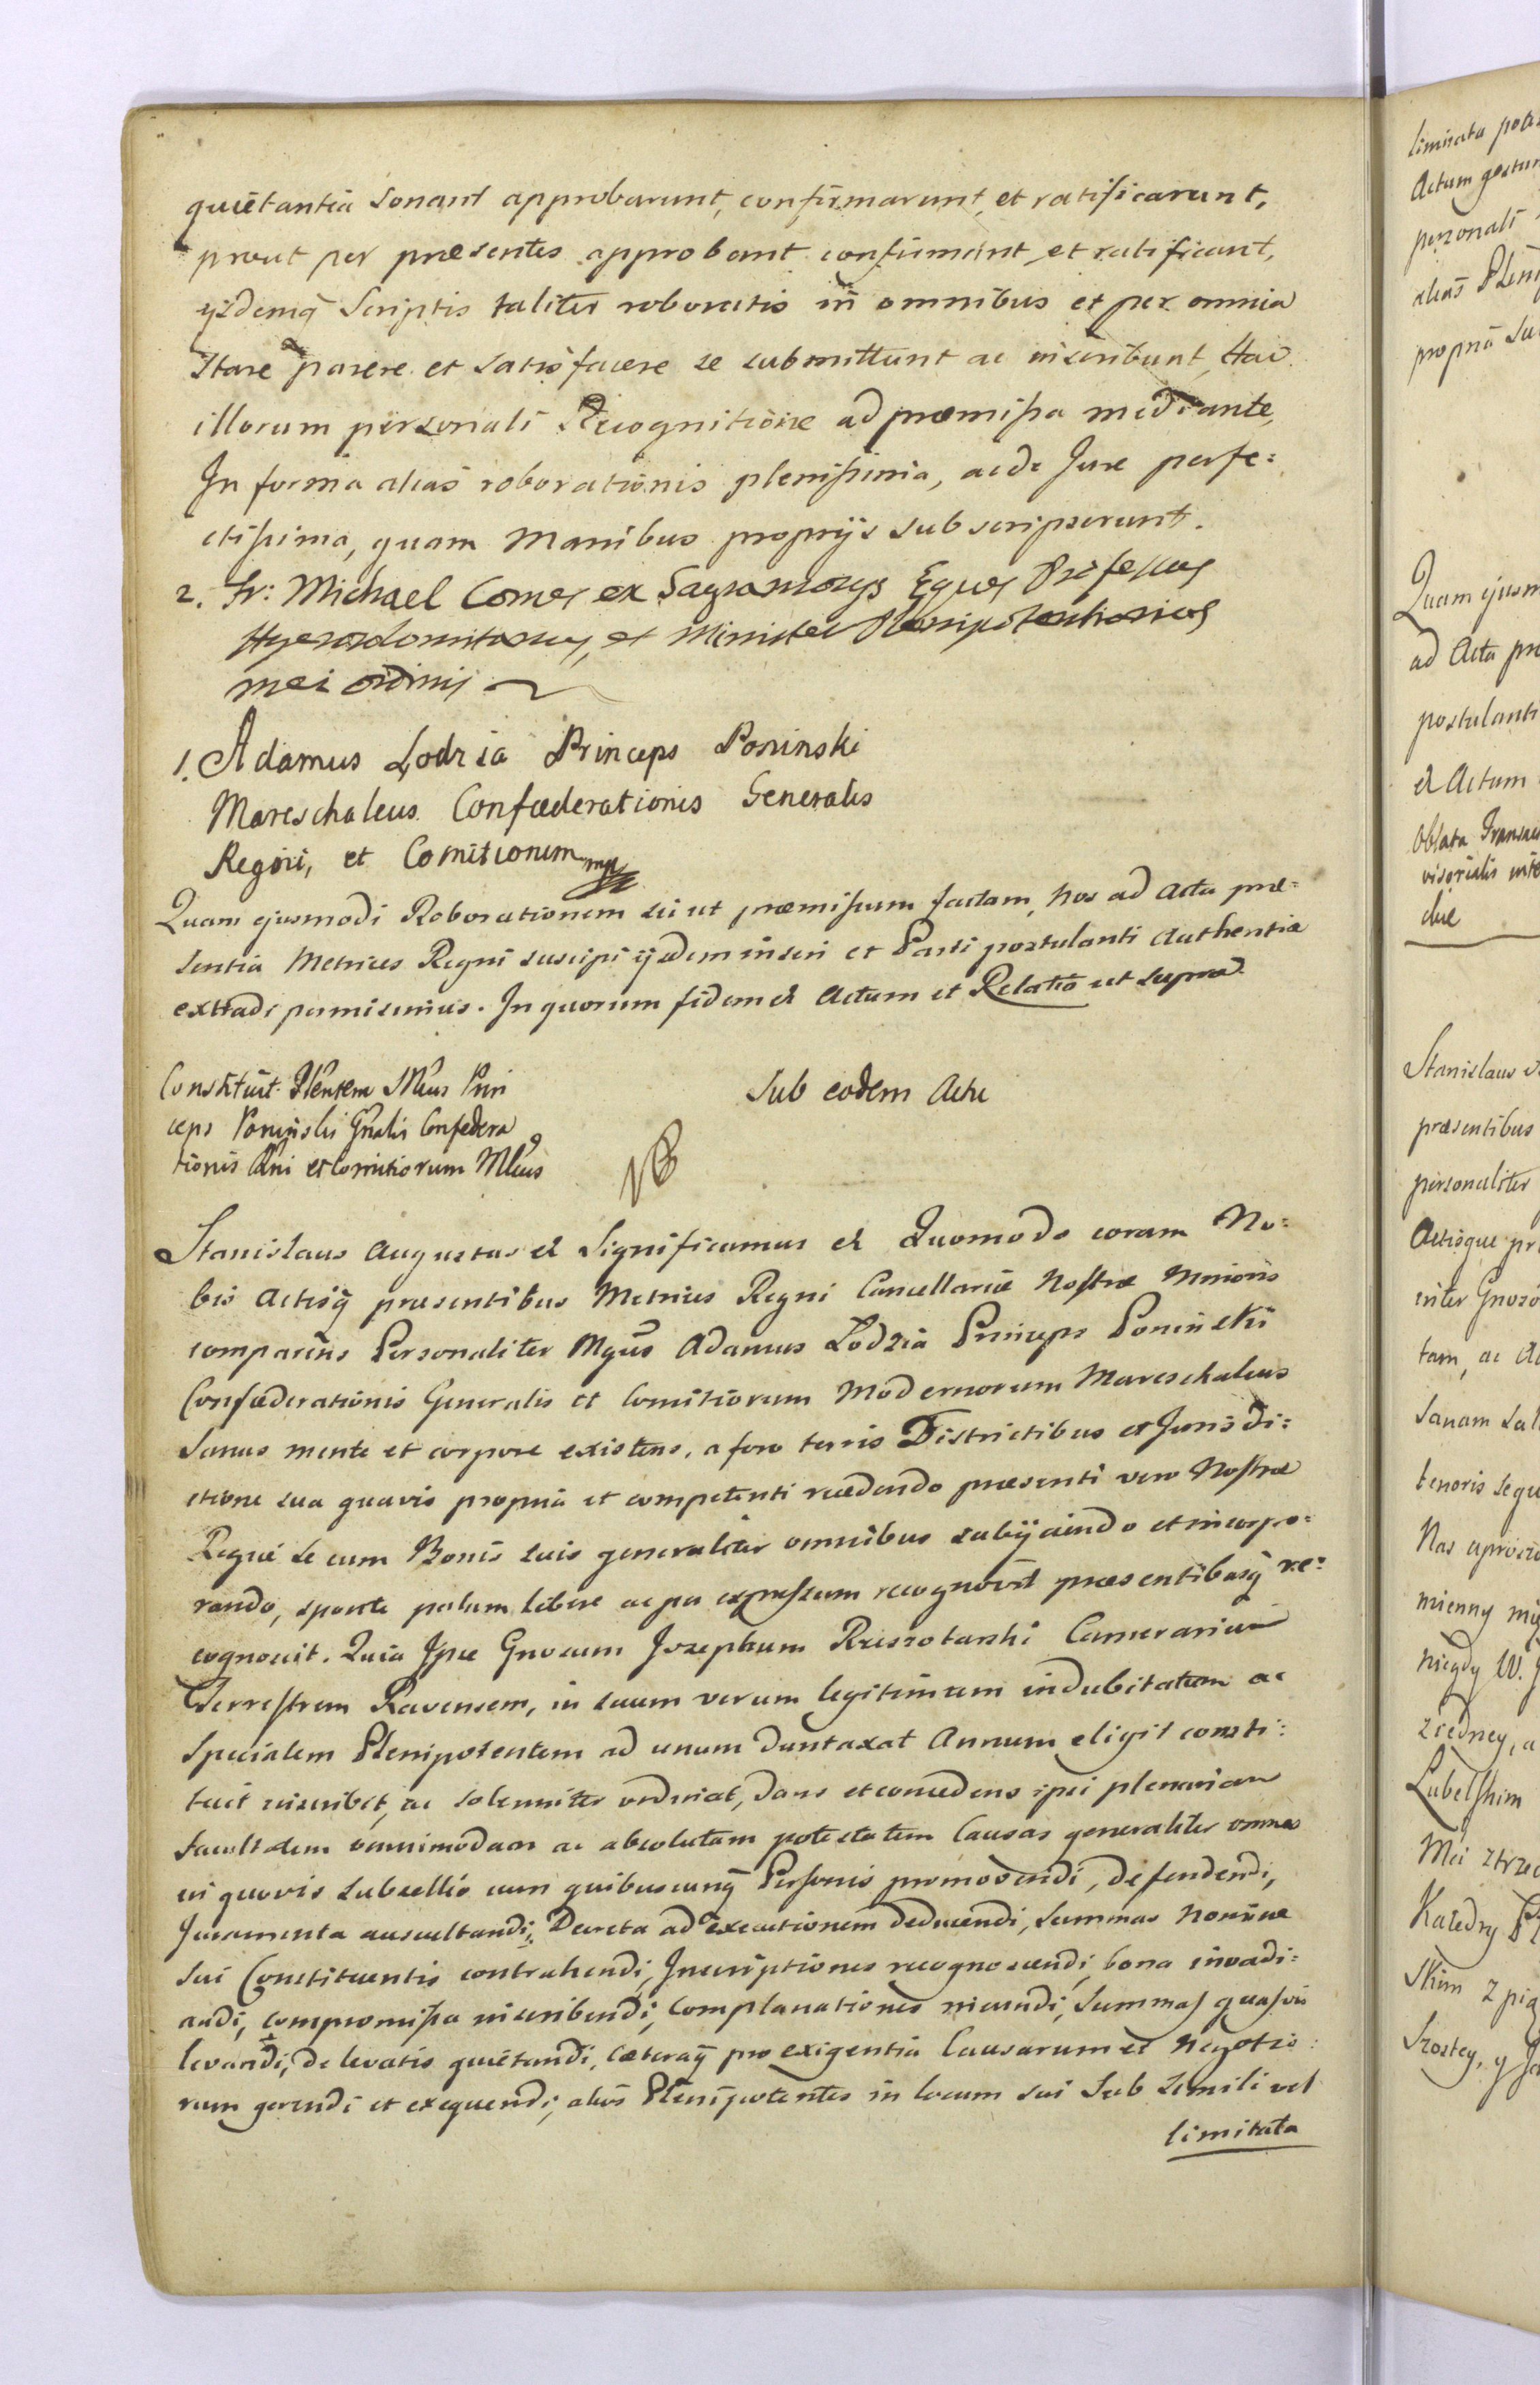 quietantia sonant approbarunt, confirmarunt, et ratificarunt,
prout per præsentes approbant confirmant, et ratificant,
ijsdemq̃ Scriptis taliter roboratis in omnibus et per omnia
Stare parere et satisfacere se submittunt ac inscribunt, Hac
illorum personali Recognitione ad præmissa mediante,
In forma alias roborationis plenissima, ac de Jure perfe=
ctissima, quam Manibus proprijs subscripserunt.
2. Fr: Michael Comes ex Sagramosys Eques Professus
Hyerosolomitanus, et Minister Plenipotentiarius
mei ordinis
1. Adamus Lodzia Princeps Poninski
Mareschalcus Confœderationis Generalis
Regni, et Comitiorum mp
Quam ejusmodi Roborationem sic ut præmissum factam, Nos ad Acta præ=
sentia Metrices Regni suscipi ijsdem inseri et Parti postulanti Authentice
extradi permisimus. In quorum fidem & Actum et Relatio ut supra
Constituit Plentem Mcus Prin
ceps Poninski Gnalis Confedera
tionis Rni et Comitiorum Mlcus
Sub eodem Actu
NB
Stanislaus Augustus & Significamus & Quomodo coram No=
bis Actisq̃ præsentibus Metrices Regni Cancellariæ Nostræ Minoris
comparens Personaliter Mgũs Adamus Lodzia Princeps Poninski
Confœderationis Generalis et Comitiorum Modernorum Mareschalcus
Sanus mente et corpore existens, a foro terris Districtibus et Jurisdi=
ctione sua quavis propria et competenti recedendo præsenti vero Nostræ
Regiæ se cum Bonis suis generaliter omnibus subijciendo et incorpo=
rando, sponte palam libere ac per expressum recognovit præsentibusq̃ re=
cognoscit. Quia Ipse Gnosum Josephum Rzeszotarski Camerarium
Terrestrem Ravensem, in suum verum legitimum indubitatum ac
Specialem Plenipotentem ad unum duntaxat Annum eligit consti=
tuit inscribit, ac solenniter ordinat, dans et concedens ipsi plenariam
facultatem omnimodam ac absolutam potestatem Causas generaliter omnes
in quovis subsellio cum quibuscunq̃ Personis promovendi, defendendi,
Juramenta auscultandi, Decreta ad executionem deducendi, summas nomine
sui Constituentis contrahendi, Inscriptiones recognoscendi, bona invadi=
andi, compromissa inscribendi, complanationes ineundi, Summas quasvis
levandi, de levatis quietandi, cæteraq̃ pro exigentia Causarum et Negotio=
rum gerendi et exequendi, alios Plenipotentes in locum sui sub simili vel
limitata
limitata
Actum
personali
alias
propria
Quam
ad Acta
postulanti
& Actum
Oblata
visorialis
Stanislaus
præsentibus
personaliter
Actisque
inter
tam, ac
Sanam
tenoris
Nos
mienny
niegdy W.
Lubelskim
Katedry
Skim z